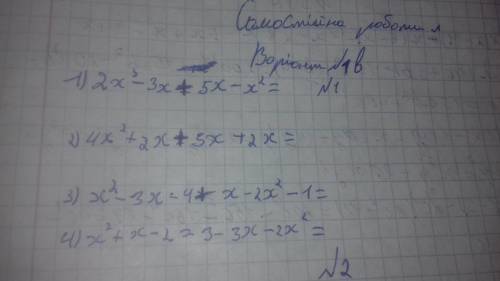 Самостійна робота
Варіант №1в
№1
1) 2x³-3x+5x-x²=
2) 4x²+2x+5x+2x=
3) x²-3x-4+x-2x²-1=
4) x²+x-2=3-3x-2x²=
№2